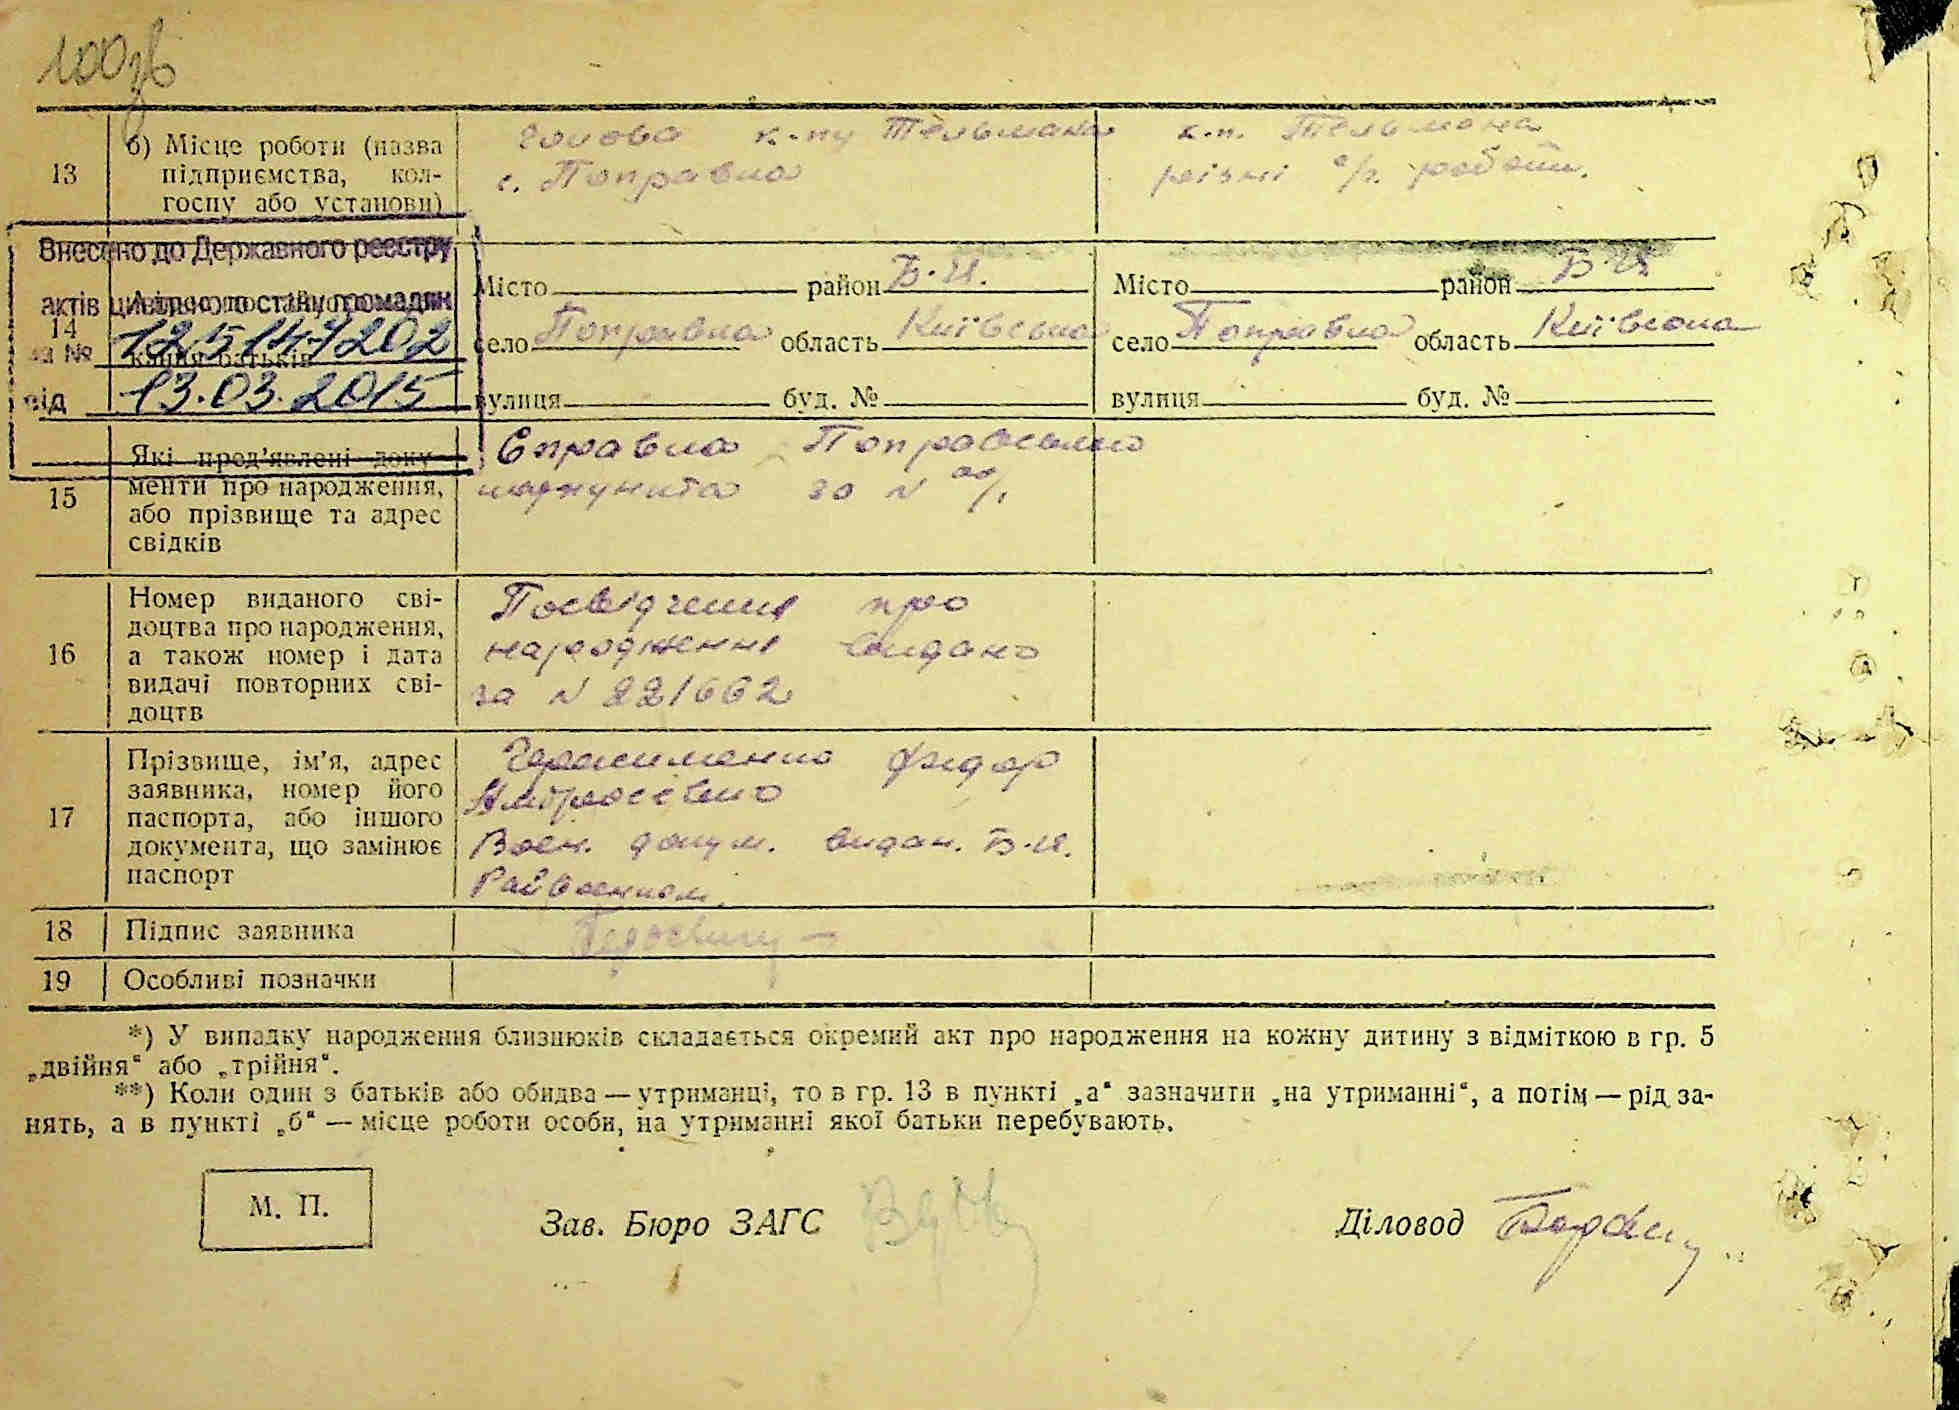 100зв
13
б) Місце роботи (назва
підприємства, кол-
госпу або установи)
голова к-пу Тельмана
с. Поправка
к.п. Тельмана
різні с/г. роботи.
Внесено до Державного реєстру
актів цивільного стану громадян
за № 125144202
від 13.03.2015
14
кання батьків
Місто район Б-Ц.
село Поправка область Київська
вулиця буд. №
Місто район Б-Ц
село Поправка область Київська
вулиця буд. №
15
Які пред'явлені доку-
менти про народження,
або прізвище та адрес
свідків
Справка Поправсько
за №
16
Номер виданого сві-
доцтва про народження,
а також номер і дата
видачі повторних сві-
доцтв
Посвідчення про
народження видано
за N 221662
17
Прізвище, ім'я, адрес
заявника, номер його
паспорта, або іншого
документа, що замінює
паспорт
Герасименко Фидор
Воєн. докум. видан. Б-Ц.
Райвоенком.
18
Підпис заявника
19
Особливі позначки
*) У випадку народження близнюків складається окремий акт про народження на кожну дитину з відміткою в гр. 5
„двійня“ або „трійня“.
**) Коли один з батьків або обидва — утриманці, то в гр. 13 в пункті „а“ зазначити „на утриманні“, а потім — рід за-
нять, а в пункті „б“ — місце роботи особи, на утриманні якої батьки перебувають.
М. П.
Зав. Бюро ЗАГС
Діловод